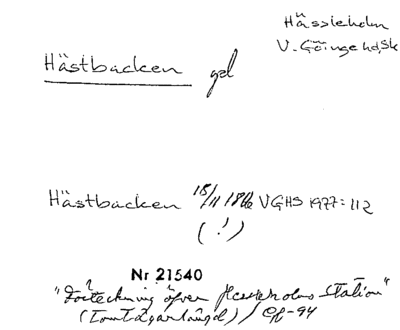 Hässleholm
V. Göinge hd, Sk
Hästbacken gd
Hästbacken 18/11 1866 VGHS 1977:112
(!)
Nr 21540
"Förteckning öfver Hessleholms Station"
(Tomtägarlängd) / Of-94